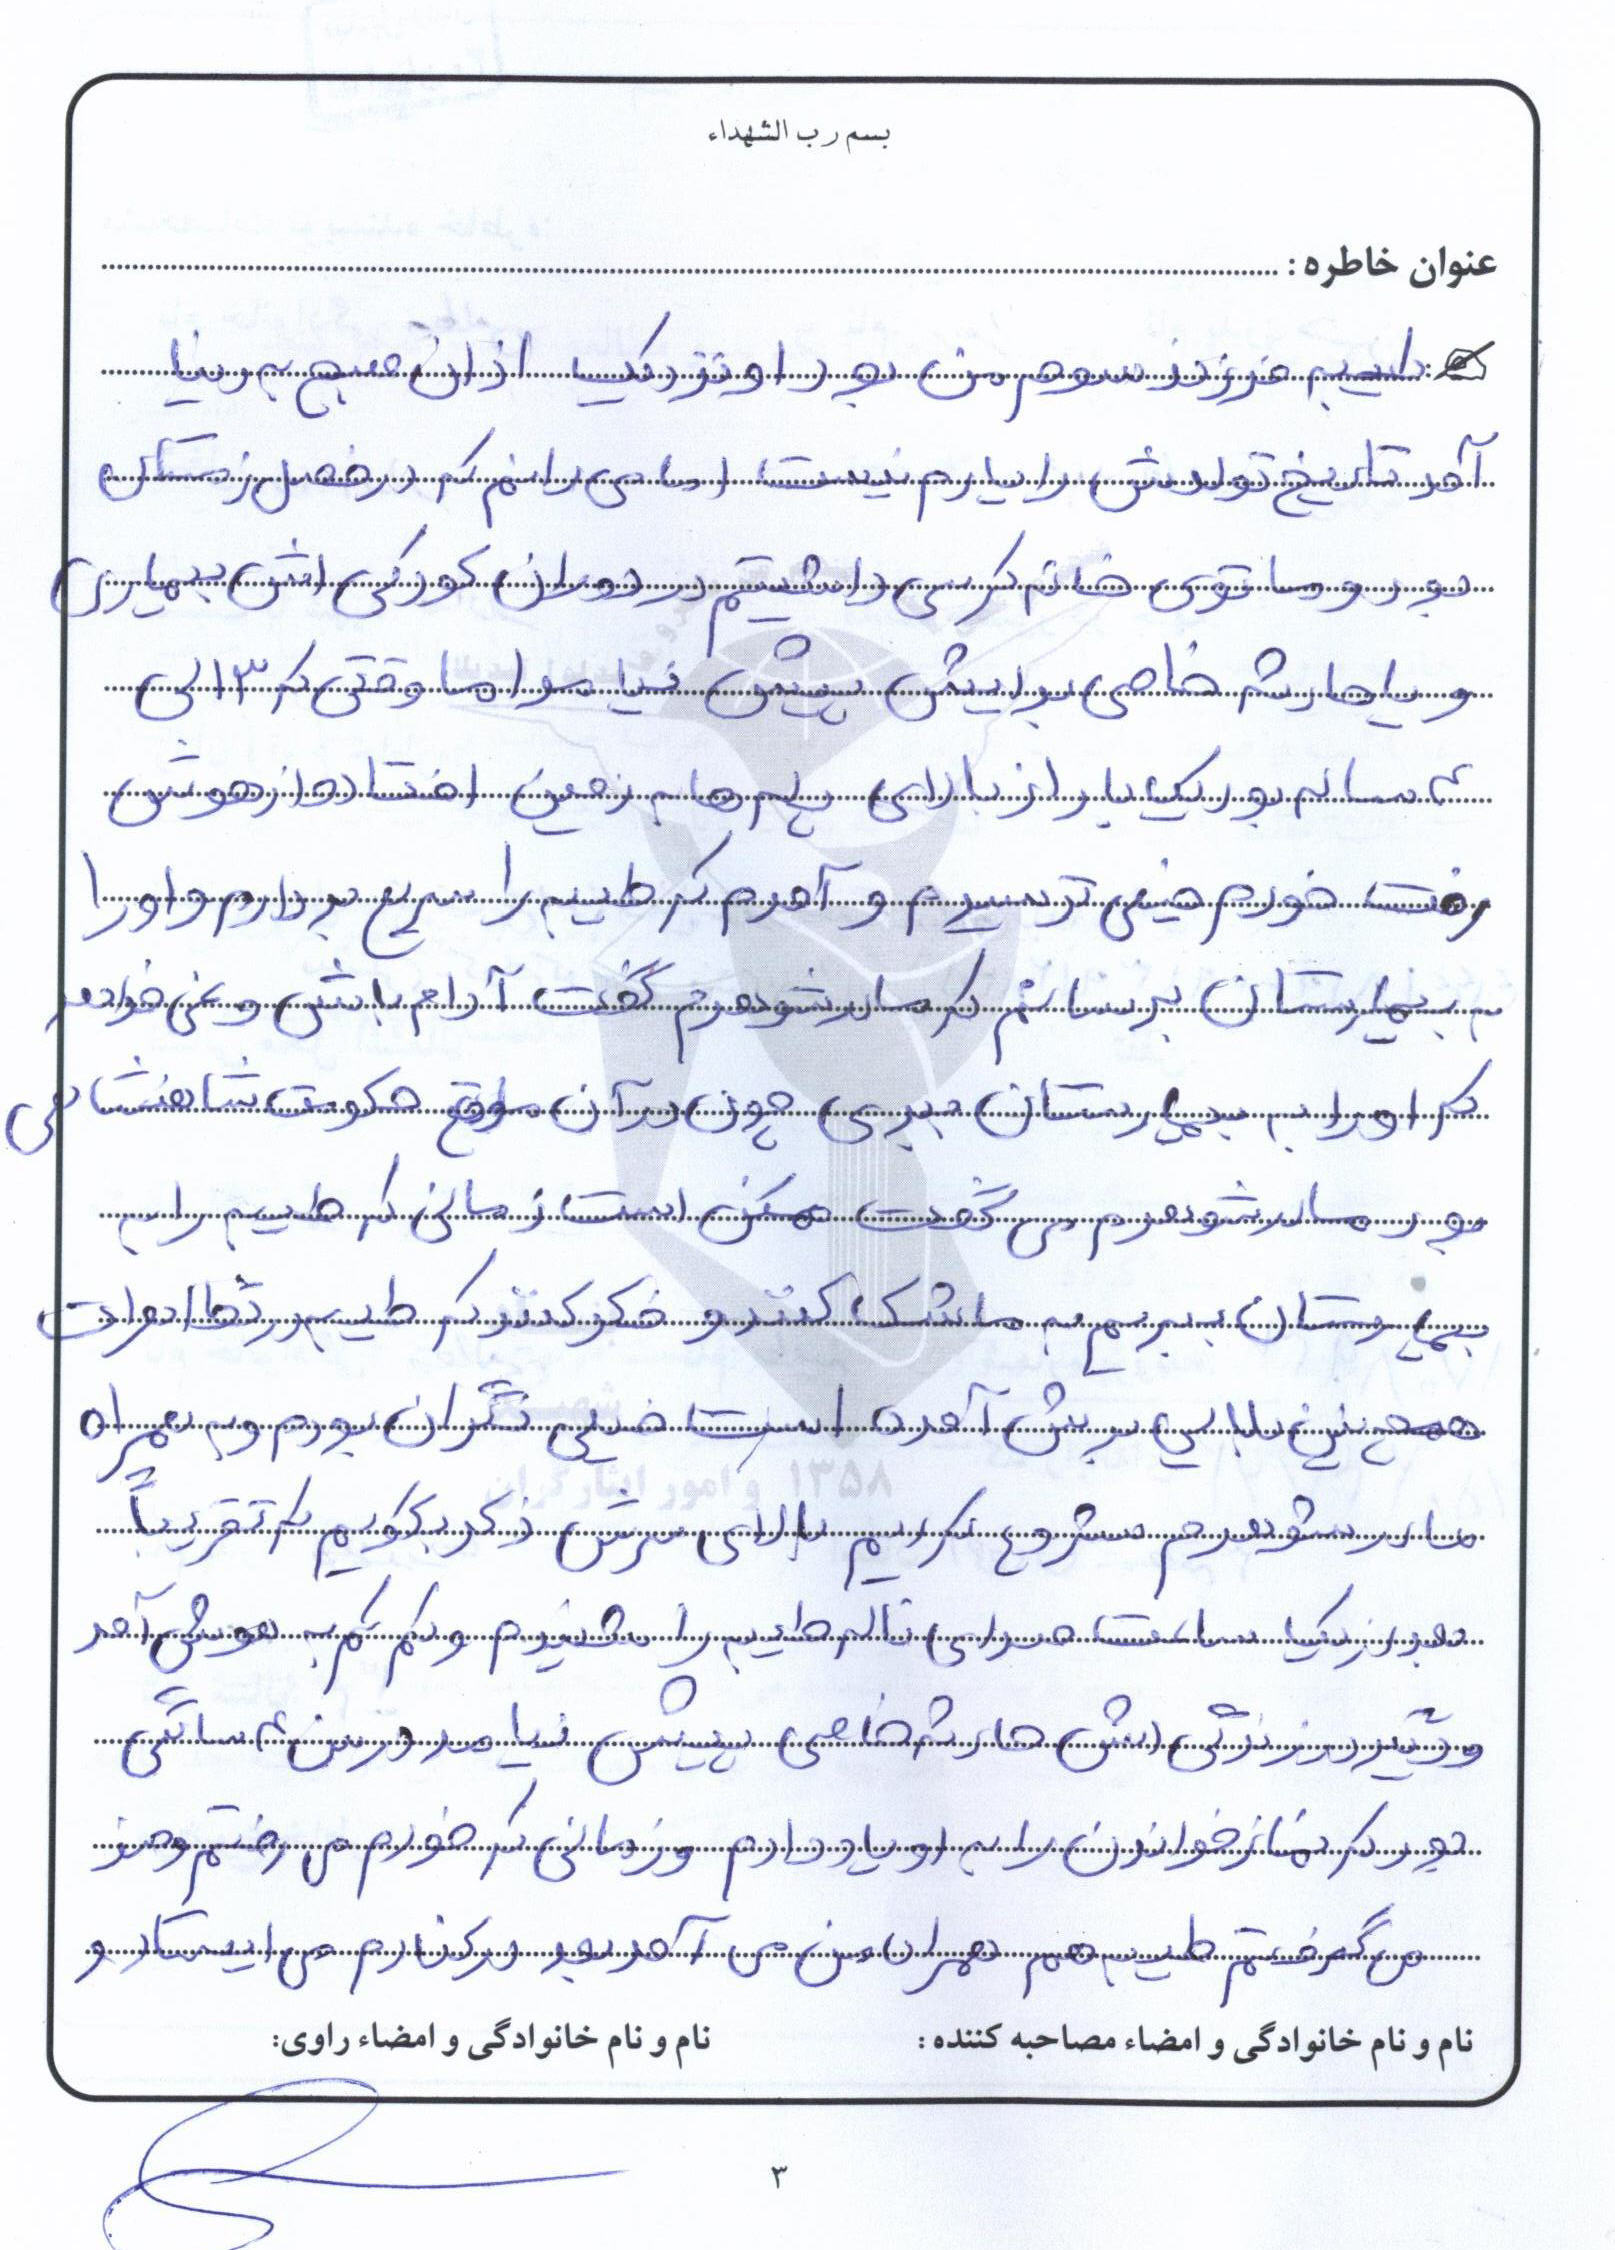 بسم رب الشهداء
عنوان خاطره :
طیبه فرزند سوم من بود او نزدیک اذان صبح به دنیا
آمد تاریخ تولدش را یادم نیست اما می دانم که در فصل زمستان
بود و ما توی خانه کرسی داشتیم در دوران کودکی اش بیماری
و یا حادثه خاصی برایش پیش نیامد اما وقتی که ۱۳ الی
۴ ساله بود یک بار از بالای پله ها به زمین افتاد و از هوش
رفت خودم خیلی ترسیدم و آمدم که طیبه را سریع بردارم و او را
به بیمارستان برسانم که مادر شوهرم گفت آرام باش و نمی خواهد
که او را به بیمارستان ببری چون در آن موقع حکومت شاهنشاهی
بود مادر شوهرم می گفت ممکن است زمانی که طیبه را به
بیمارستان ببریم به ما شک کنند و فکر کنند که طیبه در تظاهرات
همچنین بلایی سرش آمده است خیلی نگران بودم و به همراه
مادر شوهرم شروع کردیم بالای سرش ذکر بگوییم که تقریباً
بعد از یک ساعت صدای ناله طیبه را شنیدم و کم کم به هوش آمد
و دیگر در زندگی اش حادثه خاصی پیش نیامد در سن ۴ سالگی
بود که نماز خواندن را به او یاد دادم و زمانی که خودم می رفتم وضو
می گرفتم طیبه هم همراه من می آمد بعد در کنارم می ایستاد و
نام و نام خانوادگی و امضاء مصاحبه کننده :
نام و نام خانوادگی و امضاء راوی:
۳